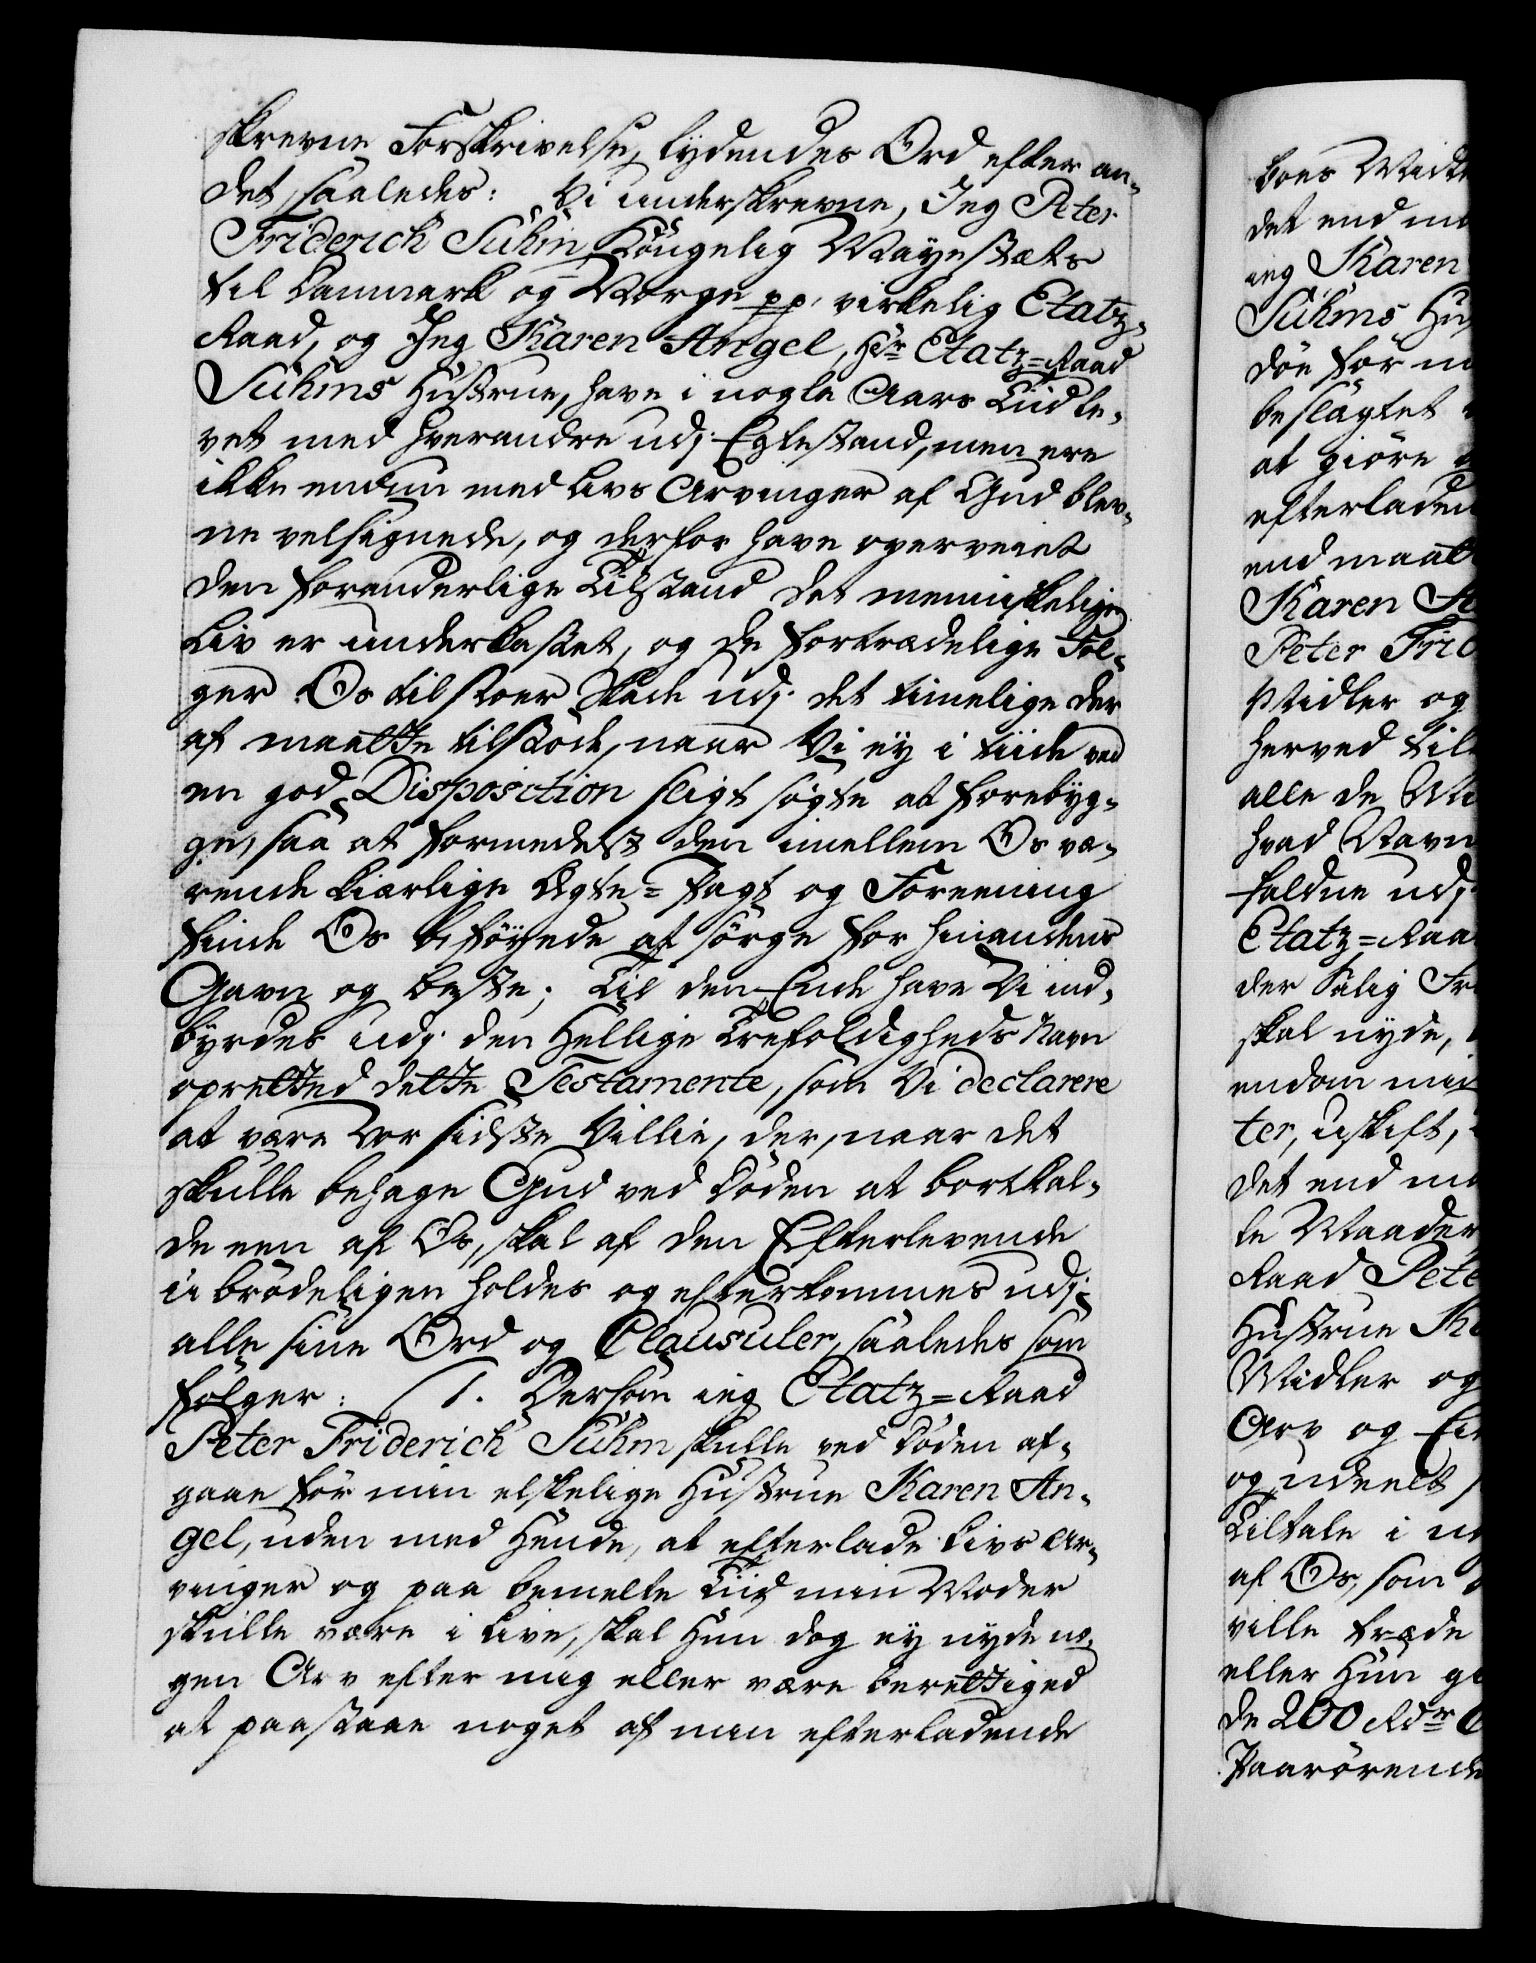 skrevne Forskrivelse, lydendes Ord efter an-
det saaledes: Vi underskrevne, Jeg Peter
Friderich Suhm, Kongelig Mayestæts
til Danmark og Norge pp. virkelig Etatz-
Raad, og Jeg Karen Angel, Hr Etatz=Raad
Suhms Hustrue, have i nogle Aars Tiid le-
vet med hverandre udj Egtestand, men ere
ikke endnu med Livs Arvinger af Gud blev-
ne velsignede, og derfor have overveiet
den foranderlige Tilstand det menniskelige
Liv er underkastet, og de fortrædelige Føl-
ger Os til stoer Skade udj det timelige der
af maatte tilstøde, naar Vi ey i tiide ved
en god Disposition sligt søgte at forebyg-
ge, saa at formedelst den imellem Os væ-
rende kiærlige Egte=Pagt og Foreening
finde Os beføyede at sørge for hinandens
Gavn og beste; Til den Ende have Vi ind-
byrdes udj den Hellige Trefoldigheds Navn
opretted dette Testamente, som Vi declarere
at være Vor sidste Villie, der, naar det
skulle behage Gud ved Døden at bortkal-
de een af Os, skal af den Efterlevende
ubrødeligen holdes og efterkommes udj
alle sine Ord og Clausuler, saaledes som
følger: 1. Dersom ieg Etatz=Raad
Peter Friderich Suhm skulle ved Døden af-
gaae før min elskelige Hustrue Karen An-
gel, uden med Hende, at efterlade Livs Ar-
vinger og paa bemelte Tiid min Moder
skulle være i Live, skal Hun dog ey nyde no-
gen Arv efter mig eller være berettiged
at paastaae noget af min efterladende
boes Midl
det end ma
ieg Karen
Suhms Hus
døe før m
beslægtet
at giøre
efterladen
end maat
Karen A
Peter Frid
Midler og
herved til
alle de Mi
hvad Navn
faldne udj
Etatz=Raa
der Salig Fr
skal nyde,
endom mi
ter, uskift,
det end ma
le Maader
Raad Pete
Hustrue Ka
Midler og
Arv og Ei
og udeelt
Tiltale i n
af Os, som
ville træde
eller Hun g
de 200 Rdr
Paarørende